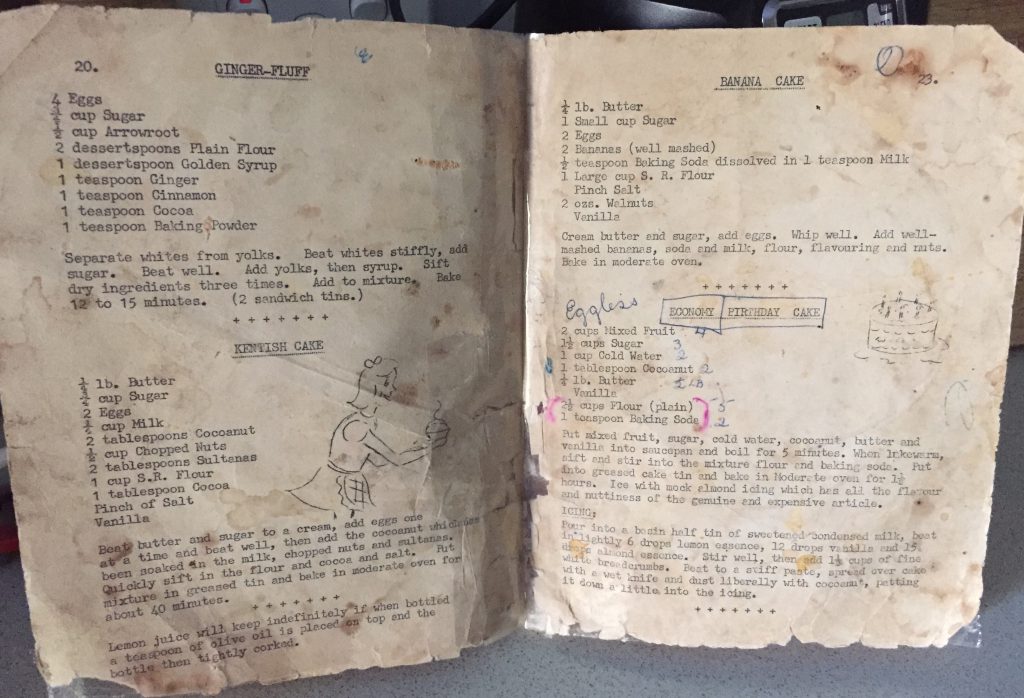 20.
GINGER-FLUFF
4 Eggs
cup Sugar
½ cup Arrowroot
2 dessertspoons Plain Flour
1 dessertspoon Golden Syrup
1 teaspoon Ginger
1 teaspoon Cinnamon
1 teaspoon Cocoa
1 teaspoon Baking Powder
Separate whites from yolks. Beat whites stiffly, add
sugar. Beat well. Add yolks, then syrup. Sift
dry ingredients three times. Add to mixture. Bake
12 to 15 minutes. (2 sandwich tins.)
+ + + + + + +
KENTISH CAKE
lb. Butter
cup Sugar
2 Eggs
cup Milk
2 tablespoons Cocoanut
½ cup Chopped Nuts
2 tablespoons Sultanas
1 cup S.R. Flour
1 tablespoon Cocoa
Pinch of Salt
Vanilla
Beat butter and sugar to a cream, add eggs one
at a time and beat well, then add the cocoanut which has
been soaked in the milk, chopped nuts and sultanas.
Quickly sift in the flour and cocoa and salt. Put
mixture in greased tin and bake in moderate oven for
about 40 minutes.
+ + + + + + +
Lemon juice will keep indefinitely if when bottled
a teaspoon of olive oil is placed on top and the
bottle then tightly corked.
23.
BANANA CAKE
¼ lb. Butter
1 Small cup Sugar
2 Eggs
2 Bananas (well mashed)
½ teaspoon Baking Soda dissolved in 1 teaspoon Milk
1 Large cup S. R. Flour
Pinch Salt
2 ozs. Walnuts
Vanilla
Cream butter and sugar, add eggs. Whip well. Add well-
mashed bananas, soda and milk, flour, flavouring and nuts.
Bake in moderate oven.
+ + + + + + +
Eggless
ECONOMY BIRTHDAY CAKE
2 cups Mixed Fruit 4
1½ cups Sugar 3
1 cup Cold Water 2
1 tablespoon Cocoanut 2
¼ lb. Butter ½ LB
Vanilla
2½ cups Flour (plain) 5
1 teaspoon Baking Soda 2
Put mixed fruit, sugar, cold water, cocoanut, butter and
vanilla into saucepan and boil for 5 minutes. When lukewarm,
sift and stir into the mixture flour and baking soda. Put
into greased cake tin and bake in Moderate oven for 1½
hours. Ice with mock almond icing which has all the flavour
and nuttiness of the genuine and expensive article.
ICING;
Pour into a basin half tin of sweetened condensed milk, beat
in lightly 6 drops lemon essence, 12 drops vanilla and 15
drops almond essence. Stir well, then add 1½ cups of fine
white breadcrumbs. Beat to a stiff paste, spread over cake
with a wet knife and dust liberally with cocoanut, patting
it down a little into the icing.
+ + + + + + +